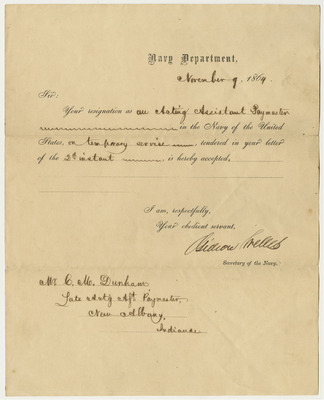 Navy Department,
November 9, 1864.
Sir:
Your resignation as an Acting Assistant Paymaster
in the Navy of the United
States, on temporary service, tendered in your letter
of the 2d instant, is hereby accepted.
I am, respectfully,
Your obedient servant,
Gideon Welles
Secretary of the Navy.
Mr. C. M. Dunham
Late Actg Asst Paymaster,
New Albany,
Indiana.